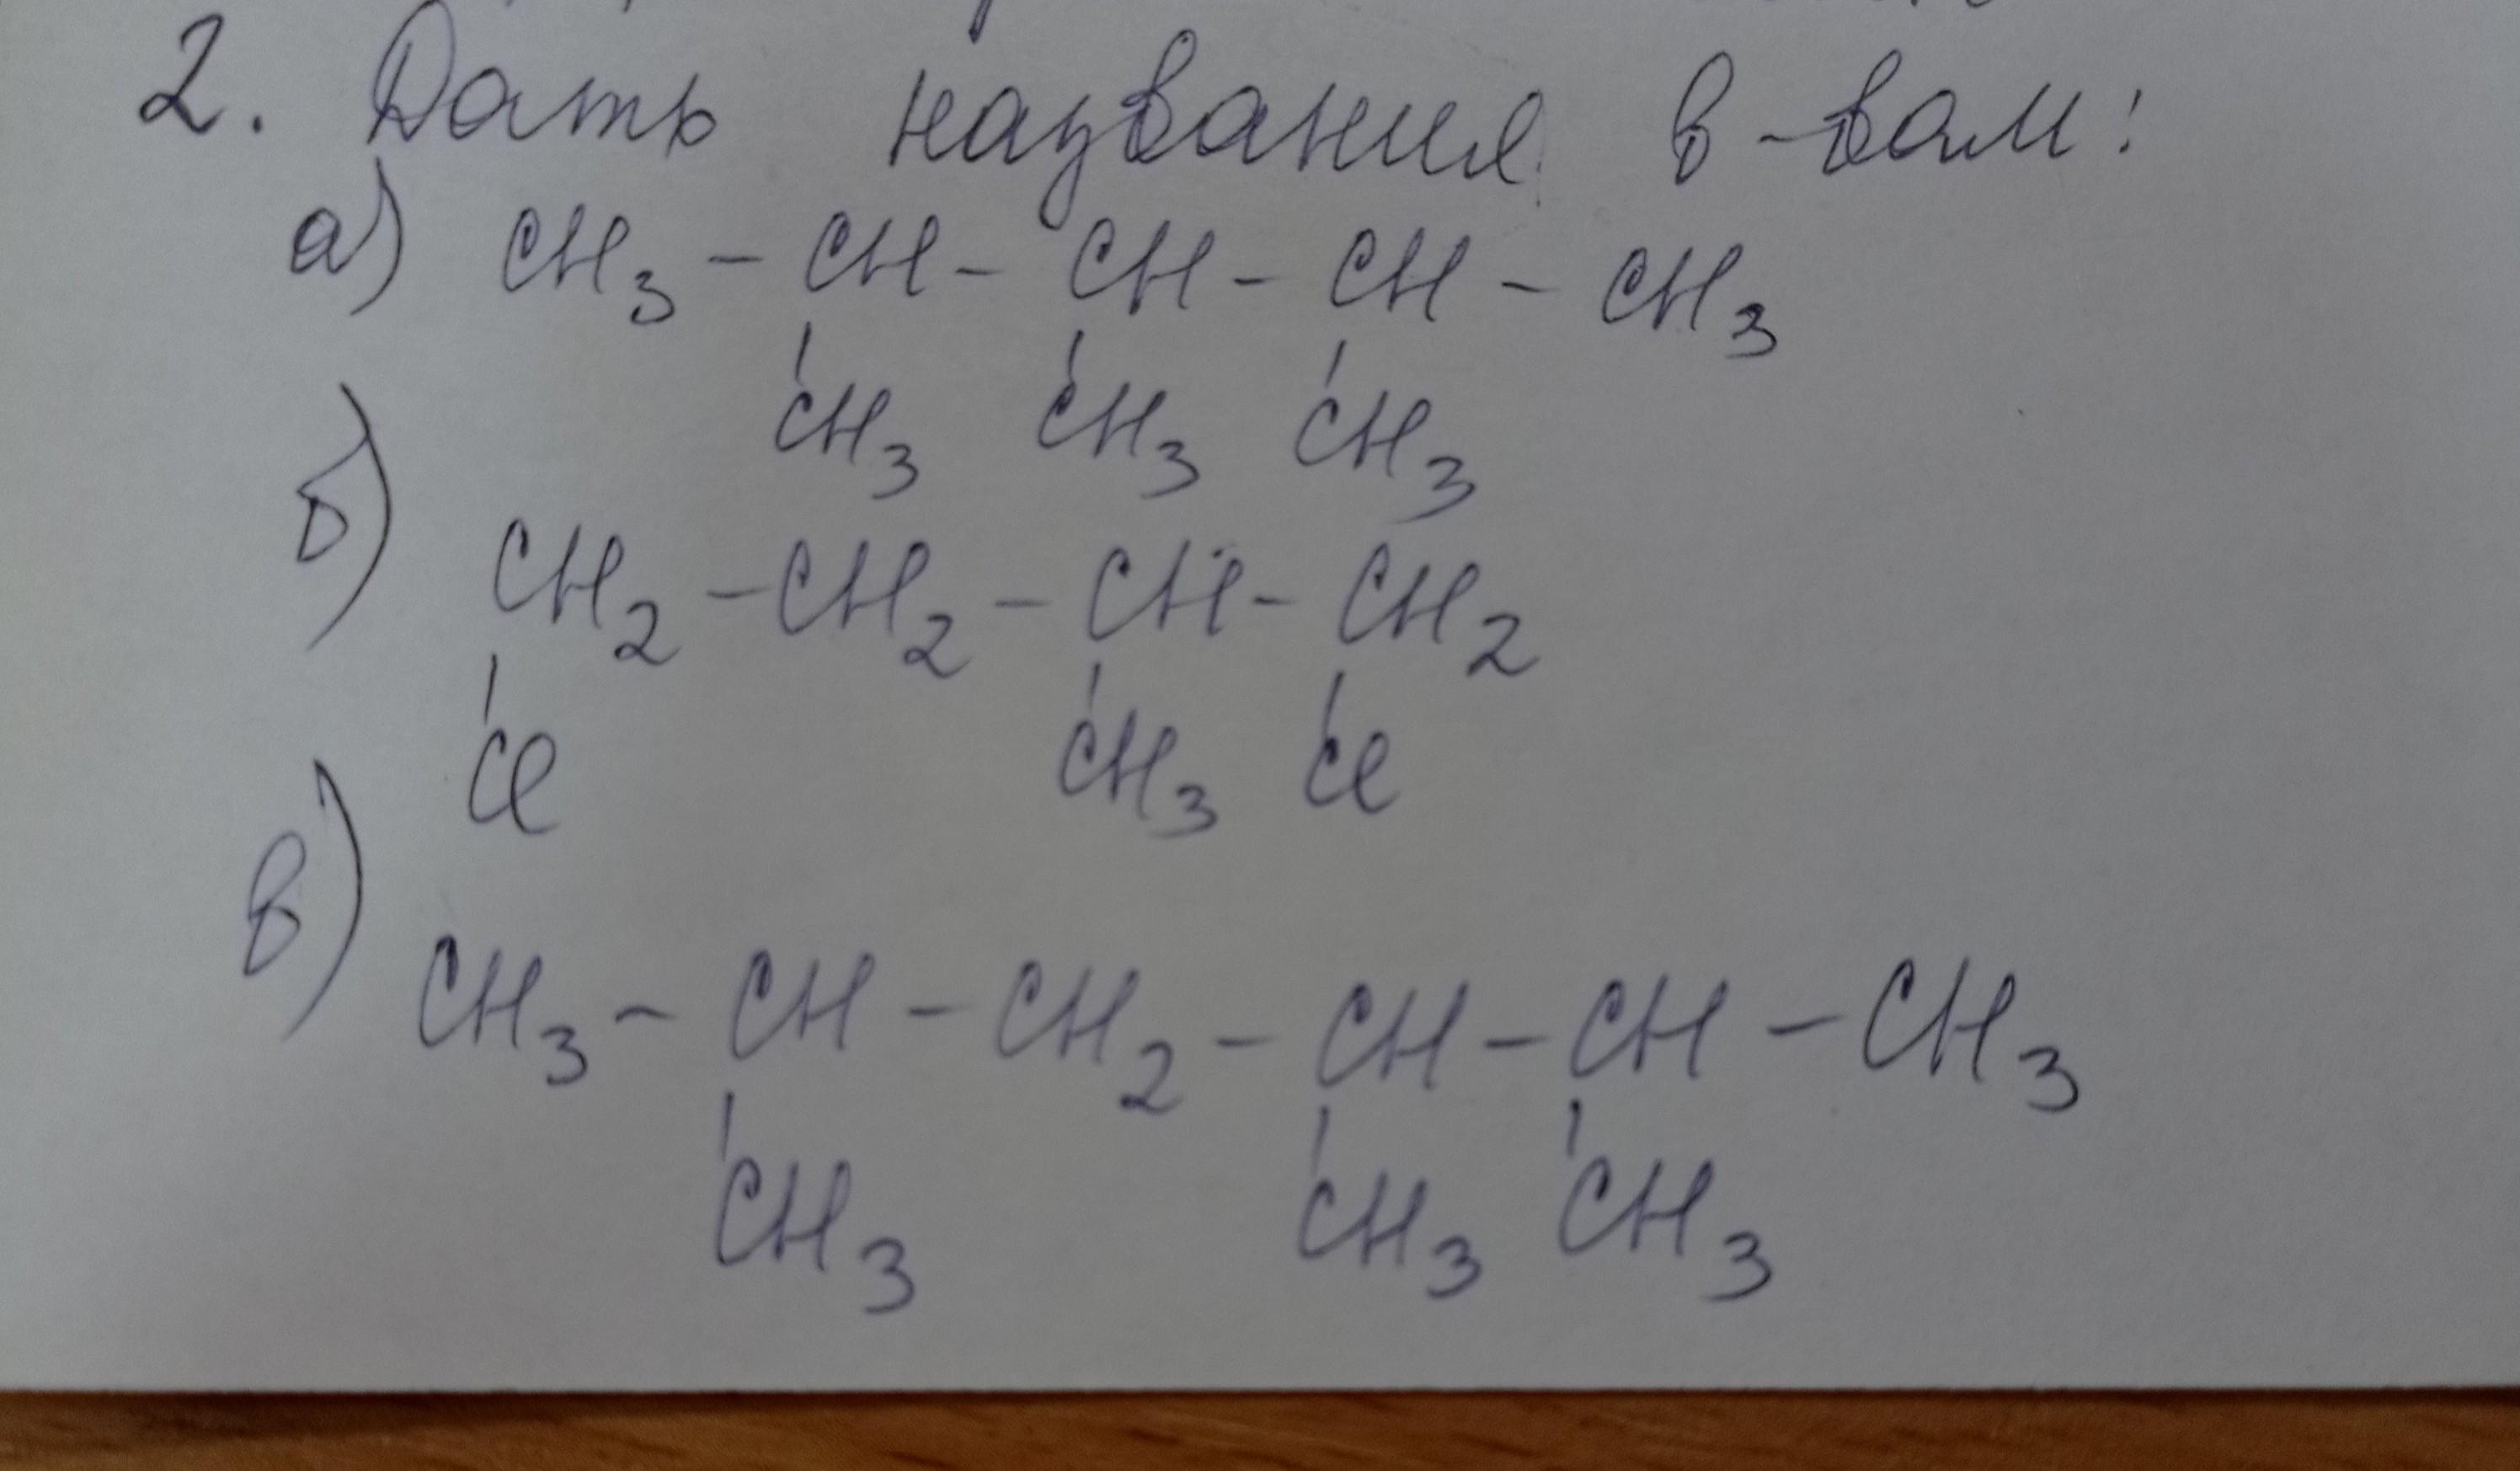 2. Дать названия в-вам:
а) CH3 - CH - CH - CH - CH3
CH3 CH3 CH3
б) CH2 - CH2 - CH - CH2
Cl CH3 Cl
в) CH3 - CH - CH2 - CH - CH - CH3
CH3 CH3 CH3